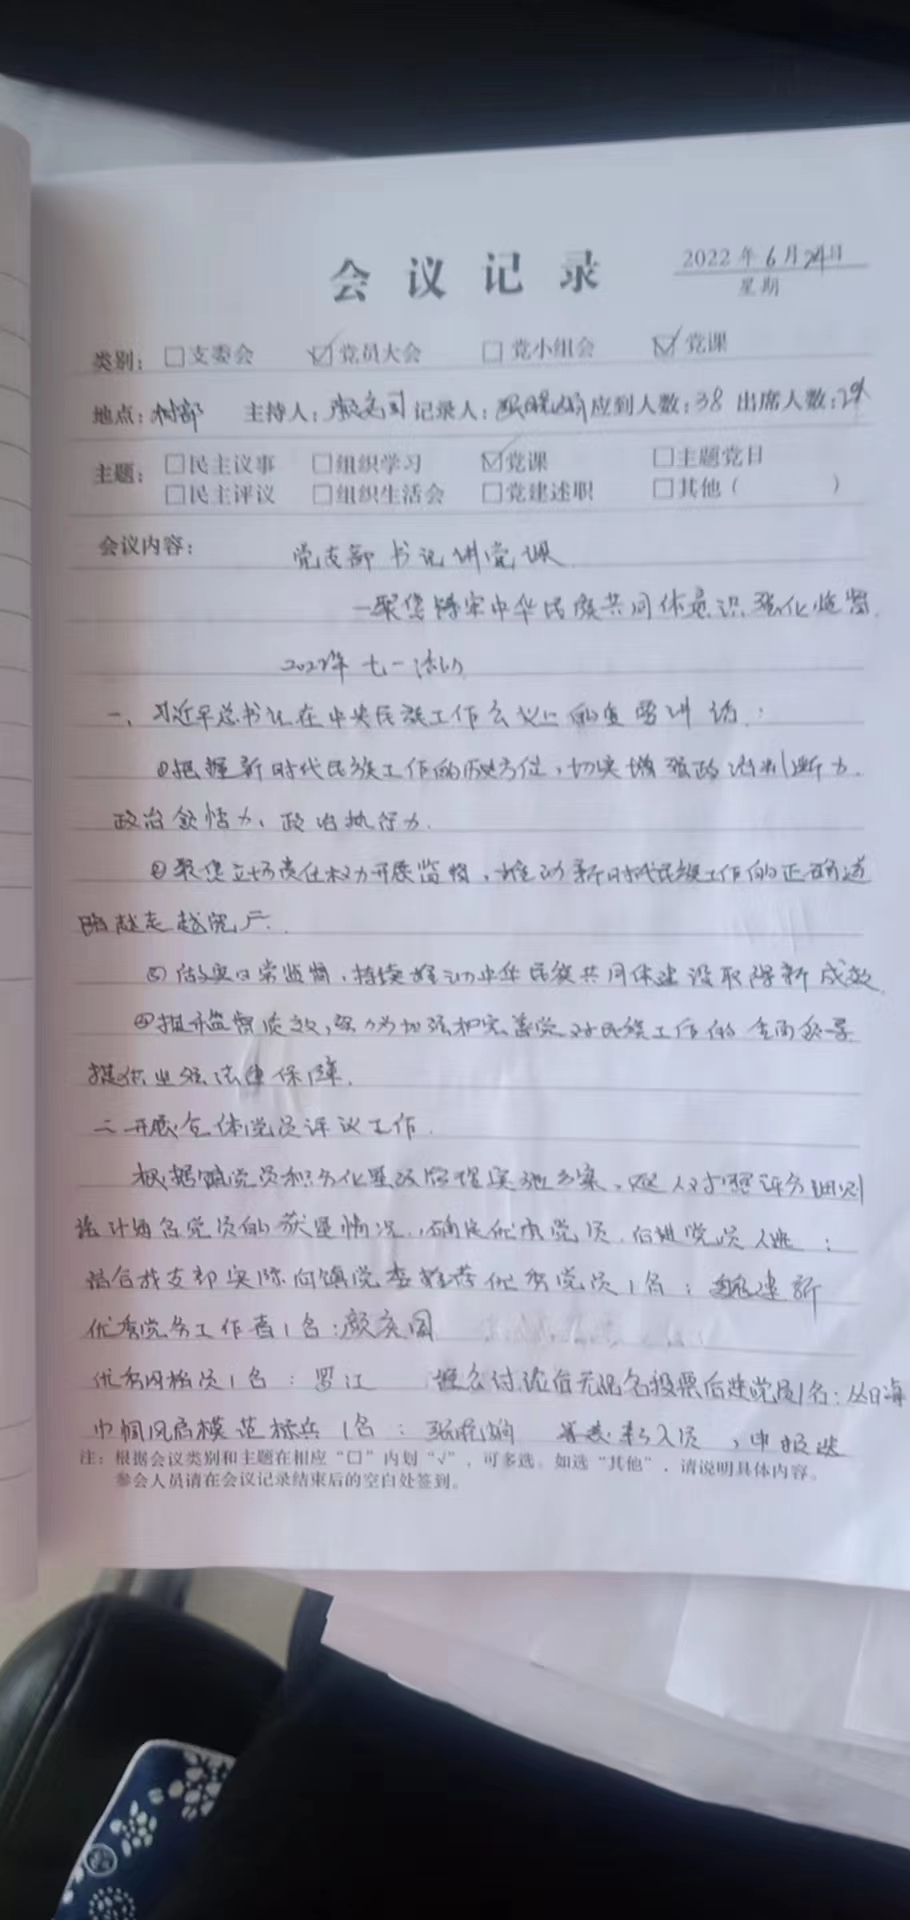 会议记录
2022年6月24日
星期
类别：□支委会 ☑党员大会 □党小组会 ☑党课
地点：村部 主持人： 记录人： 应到人数：38 出席人数：
主题：□民主议事 □组织学习 ☑党课 □主题党日
□民主评议 □组织生活会 □党建述职 □其他（ ）
会议内容： 党支部书记讲党课
—聚焦铸牢中华民族共同体意识强化监督
2022年七一活动
一、习近平总书记在中央民族工作会议上的重要讲话：
①把握新时代民族工作的历史方位，切实增强政治判断力、
政治领悟力、政治执行力.
②聚焦 责任 开展监督，推动新时代民族工作的正确道
路越走越宽广.
③做实日常监督，持续推动中华民族共同体建设取得新成效
④提升监督质效，努力为加强和完善党对民族工作的全面领导
提供坚强法律保障.
二 开展全体党员评议工作.
根据镇党员积分化 管理实施方案， 对照评分细则
统计每名党员的获星情况，确定优秀党员，后进党员人选；
结合我支部实际向镇党委推荐优秀党员1名： 建新
优秀党务工作者1名：
优秀网格员1名：罗江 讨论后无记名投票后进党员1名：丛日海
巾帼 模范标兵1名： 人员，申报选
注：根据会议类别和主题在相应“□”内划“√”，可多选。如选“其他”，请说明具体内容。
参会人员请在会议记录结束后的空白处签到。